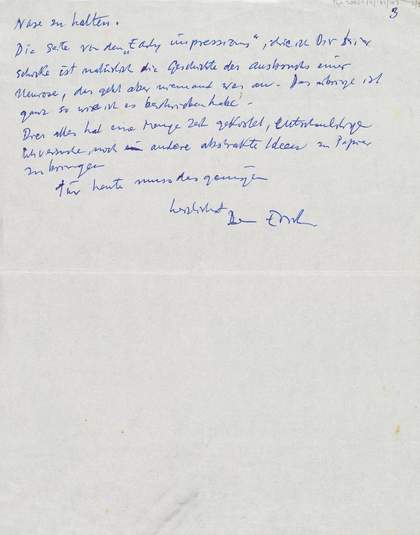 3
Nase zu halten.
Die Seite von den "Early impressions", die ich Dir hier
schicke ist natürlich die Geschichte des Ausbruchs einer
Neurose, das geht aber niemand was an. Das übrige ist
ganz so wie ich es beschrieben habe.
Dies alles hat eine Menge Zeit gekostet,
noch andere abstrakte Ideen zu Papier
zu bringen
Für heute muss das genügen
herzlichst
Dein